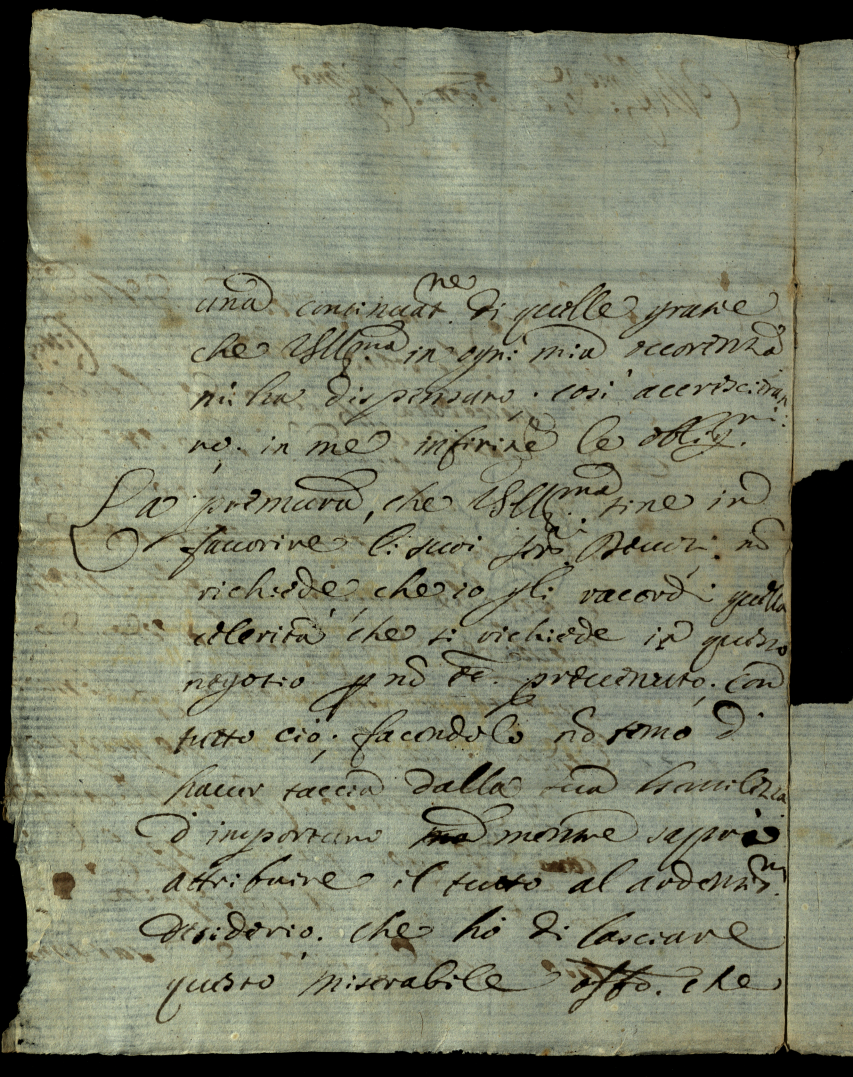 una continuat.ne di quelle gratie
che VSIll.ma in ogni mia occorenza
mi ha dispensato. così accresciran
no. in me infinite le oblig.ni:
La premura, che VSIll.ma tine in
favorire li suoi ser.i non
richiede, che io gli racordi quella
celerità che si richiede in questo
negotio p no e. prevenuto. con
tutto ciò; facendolo nō temo d'
haver taccia dalla sua humilezza
d'importuno mentre saprà
attribuire il tutto al ardentis.mo
desiderio. che hò di lasciare
questo miserabile offo. che